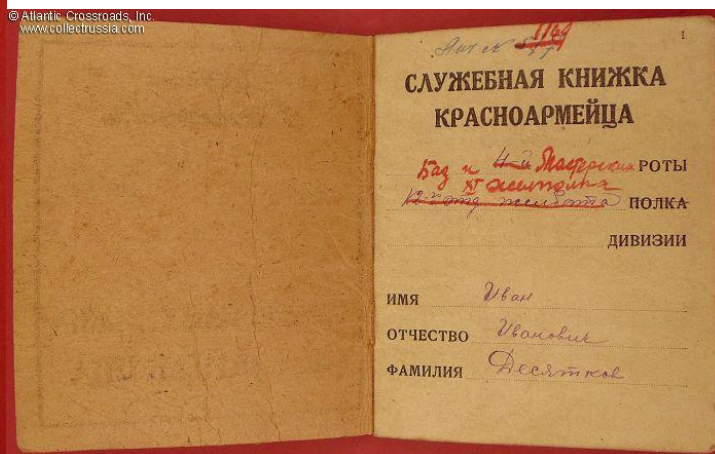 © Atlantic Crossroads, Inc.
www.collectrussia.com
1
СЛУЖЕБНАЯ КНИЖКА
КРАСНОАРМЕЙЦА
Баз и Мастерских РОТЫ
XI
ПОЛКА
ДИВИЗИИ
ИМЯ Иван
ОТЧЕСТВО Иванович
ФАМИЛИЯ Десятков